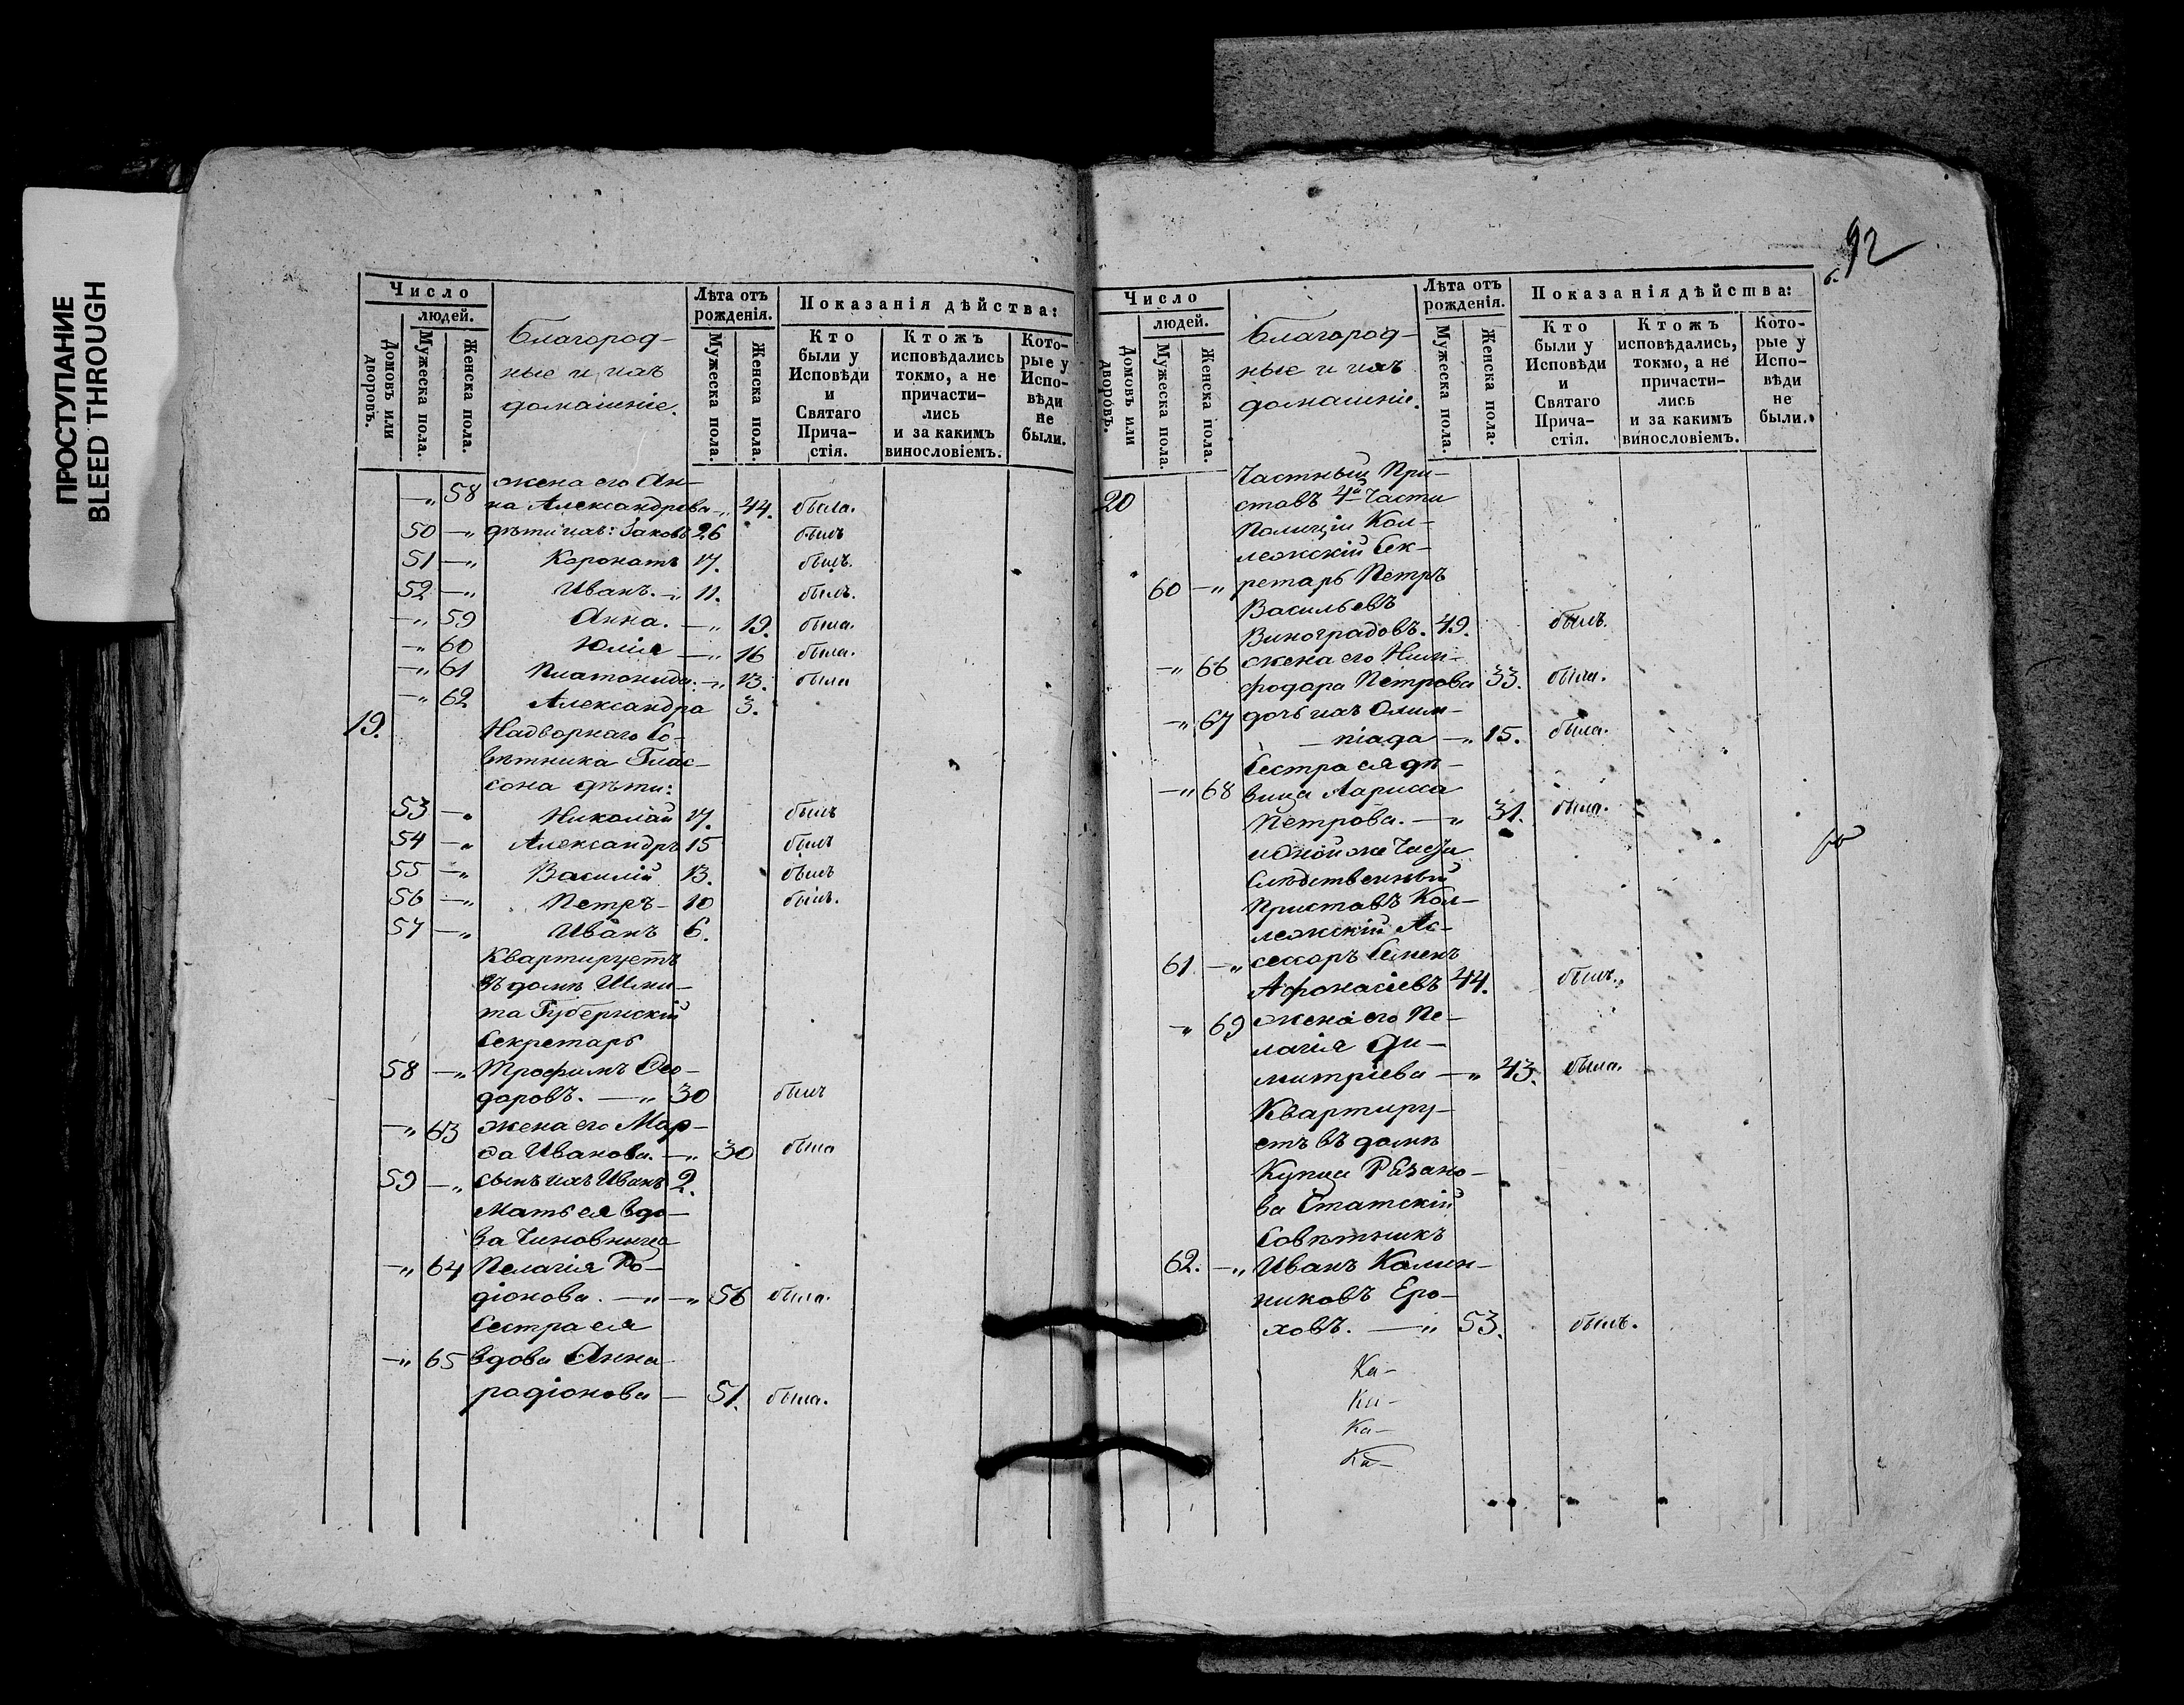 ПРОСТУПАНИЕ
BLEED THROUGH
Число
людей.
Домовъ или дворовъ.
Мужеска пола.
Женска пола.
Благород-
ные и ихъ
домашніе.
Лѣта отъ
рожденія.
Мужеска пола.
Женска пола.
Показанія дѣйства:
Кто
были у
Исповѣди
и
Святаго
Прича-
стія.
Ктожъ
исповѣдались
токмо, а не
причасти-
лись
и за какимъ
винословіемъ.
Кото-
рые у
Испо-
вѣди
не
были.
жена его Ан-
—„ 58 на Александрова —„ 44. была.
50 —„ дѣти ихъ: Іаковъ 26 былъ
51 —„ Коронатъ 17. былъ.
52 —„ Иванъ. —„ 11. былъ.
—„ 59 Анна. —„ 19. была.
—„ 60 Юлія —„ 16 была.
—„ 61 Платонида. —„ 13. была
—„ 62 Александра 3.
19. Надворнаго Со-
вѣтника Глас-
сона дѣти:
53 —„ Николай 17. былъ
54 —„ Александръ 15 былъ
55 —„ Василій 13. былъ
56 —„ Петръ — 10 былъ.
57 —„ Иванъ 6.
Квартируетъ
въ домѣ Шми-
та Губернскій
Секретарь
58 —„ Трофимъ Ѳео-
доровъ. —„ 30 былъ
—„ 63 жена его Мар-
ѳа Иванова. —„ 30 была
59 —„ сынъ ихъ Иванъ 2.
Мать ея вдо-
ва Чиновница
—„ 64 Пелагія Ро-
діонова. —„ —„ 56 была.
Сестра ея
—„ 65 вдова Анна
радіонова — 51. была.
92
Число
людей.
Домовъ или дворовъ.
Мужеска пола.
Женска пола.
Благород-
ные и ихъ
домашніе.
Лѣта отъ
рожденія.
Мужеска пола.
Женска пола.
Показанія дѣйства:
Кто
были у
Исповѣди
и
Святаго
Прича-
стія.
Ктожъ
исповѣдались,
токмо, а не
причасти-
лись
и за какимъ
винословіемъ.
Кото-
рые у
Испо-
вѣди
не
были.
Частный При-
20 ставъ 4й Части
Полиціи Кол-
лежскій Сек-
60 —„ ретарь Петръ
Васильевъ
Виноградовъ. 49. былъ.
—„ 66 жена его Ним-
фодора Петрова 33. была.
—„ 67 дочь ихъ Олим-
— піада —„ 15. была.
Сестра ея дѣ-
—„ 68 вица Лариса
Петрова. —„ 31. была.
Части
Слѣдственный
Приставъ Кол-
лежскій Ас-
61 —„ сессоръ Семенъ
Афонасіевъ 44. былъ.
—„ 69 жена его Пе-
лагія Ди-
митріева —„ 43. была.
Квартиру-
етъ въ домѣ
Купца Рѣзано-
ва Статскій
Совѣтникъ
62. —„ Иванъ Калин-
никовъ Еро-
ховъ. —„ 53. былъ.
Ка-
Ка-
Ка-
Ка-